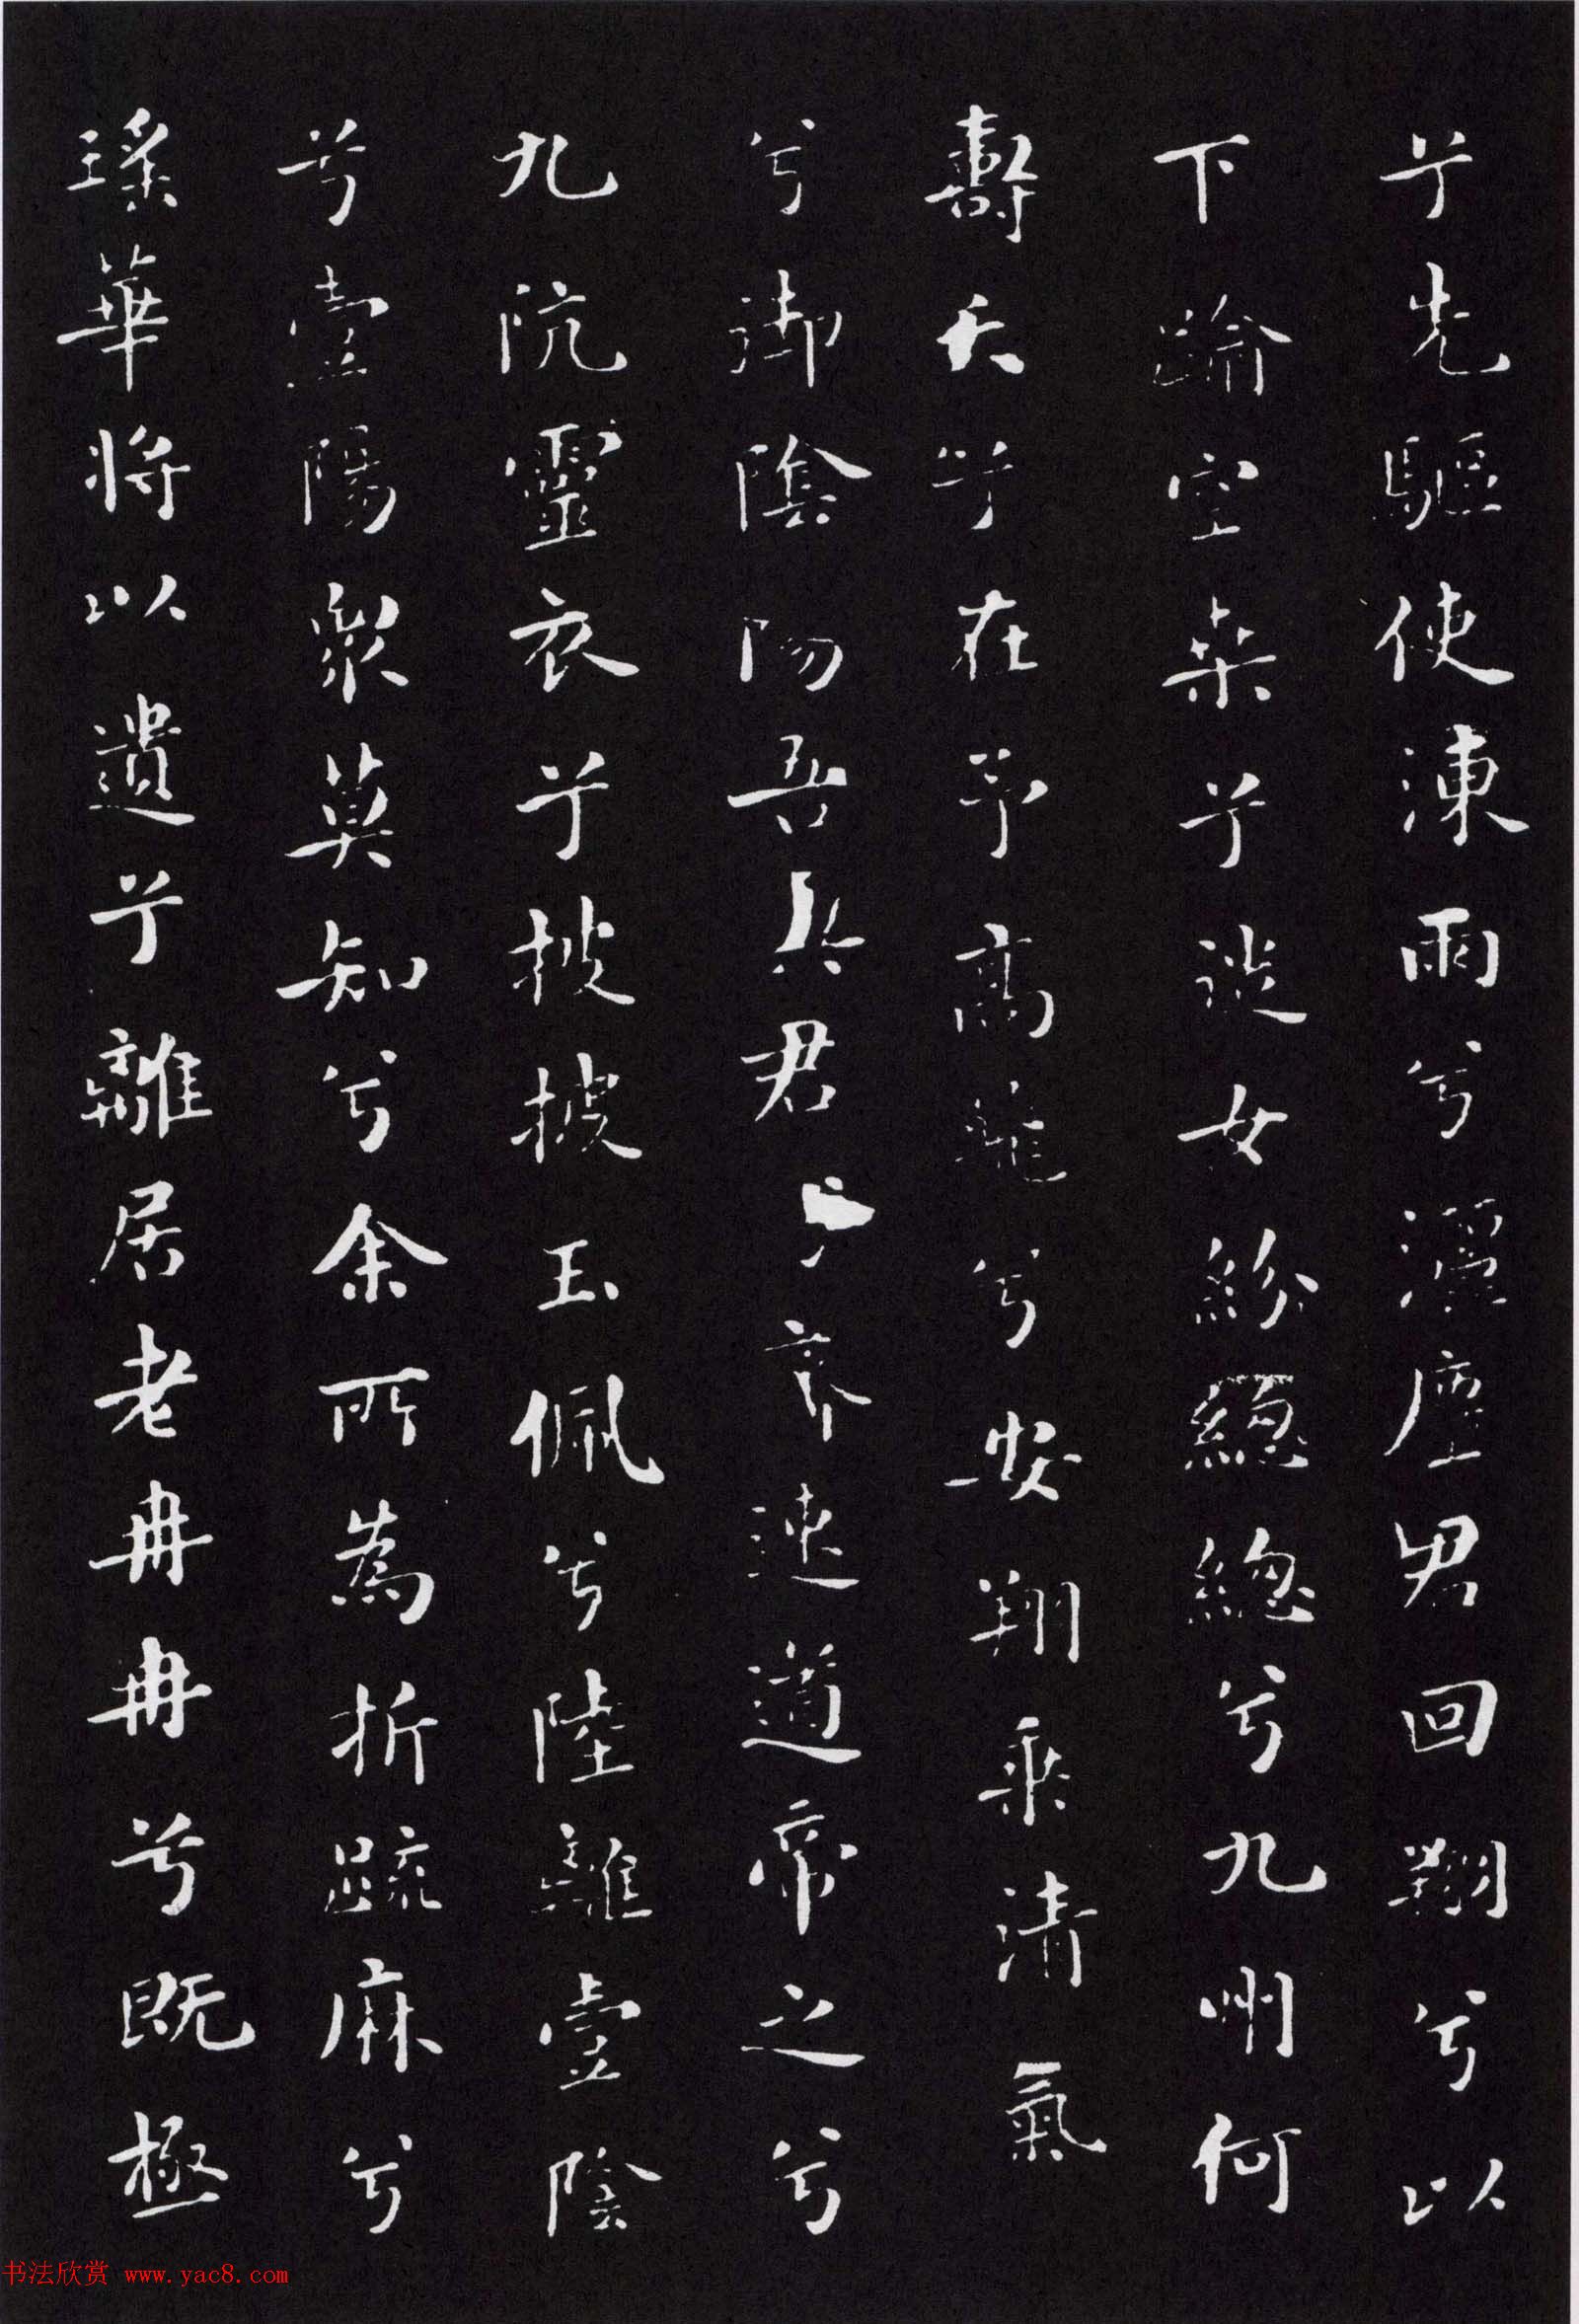 兮先驅使涷雨兮灑塵君回翔兮以
下踰空桑兮從女紛總總兮九州何
壽夭兮在予高飛兮安翔乘清氣
兮御陰陽吾與君兮齊速道帝之兮
九阬靈衣兮披披玉佩兮陸離壹陰
兮壹陽衆莫知兮余所為折疏麻兮
瑤華將以遺兮離居老冉冉兮既極
书法欣赏 www.yac8.com